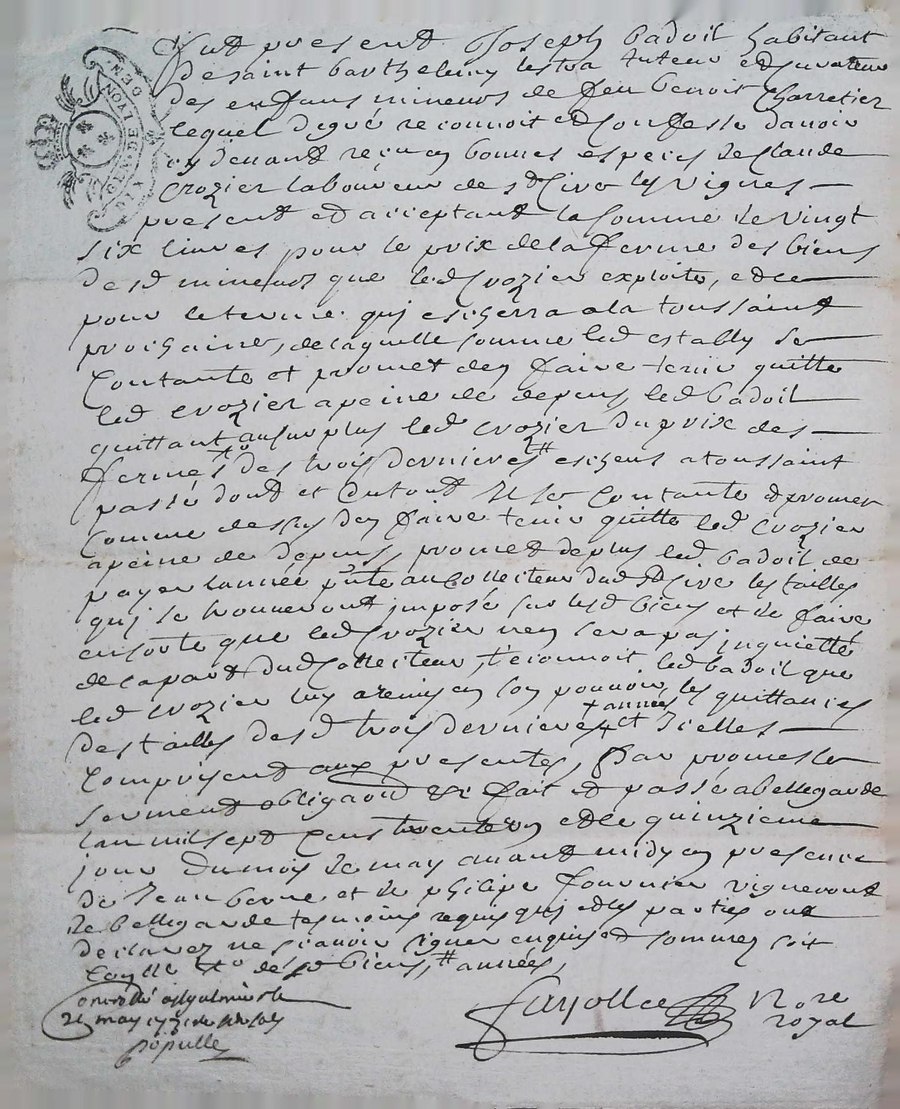 GEN. DE LYON
SIX DEN. LA
Fut present Joseph badoil habitant
de saint barthelemy lestra tuteur et curateur
des enfans mineurs de feu benoit Charretier
lequel de gré reconnoit et confesse d'avoir
cy devant reçu en bonnes especes de Claude
Crozier laboureur de st Cire les vignes
present et acceptant la somme de vingt
six livres pour le prix de la ferme des biens
desd mineurs que led Crozier exploite, et ce
pour le terme qui escherra a la toussaint
prochaine, de laquelle somme led estably se
Contante et promet den faire tenir quitte
led crozier a peine de depens led badoil
quittant au surplus led Crozier du prix des
fermes xo des trois dernieres # escheus a toussaint
passé dont et du tout il se contante et promet
comme dessus den faire tenir quitte led Crozier
a peine de depens, promet de plus led badoil de
payer lannée pnte au Collecteur dud St Cire les tailles
qui se trouveront imposé sur lesd biens et de faire
en sorte que led Crozier nen sera pas inquietté
de la part dud Collecteur, reconnoit led badoil que
led crozier luy a remis en son pouvoir les quittances
+ années
des tailles desd trois dernieres + et Icelles
comprisent aux presentes, Par promesse
serment obligaon &c fait et passé a bellegarde
lan mil sept cens trente un et le quinzieme
jour du mois de may avant midy en presence
de Jean berne et de philipe fournier vignerons
de bellegarde temoins requis qui et les parties ont
declarez ne scavoir signer enquis et sommez soit
xo desd biens, # années,
Controllé
21 may 1731
populle
fayolle Nore
royal